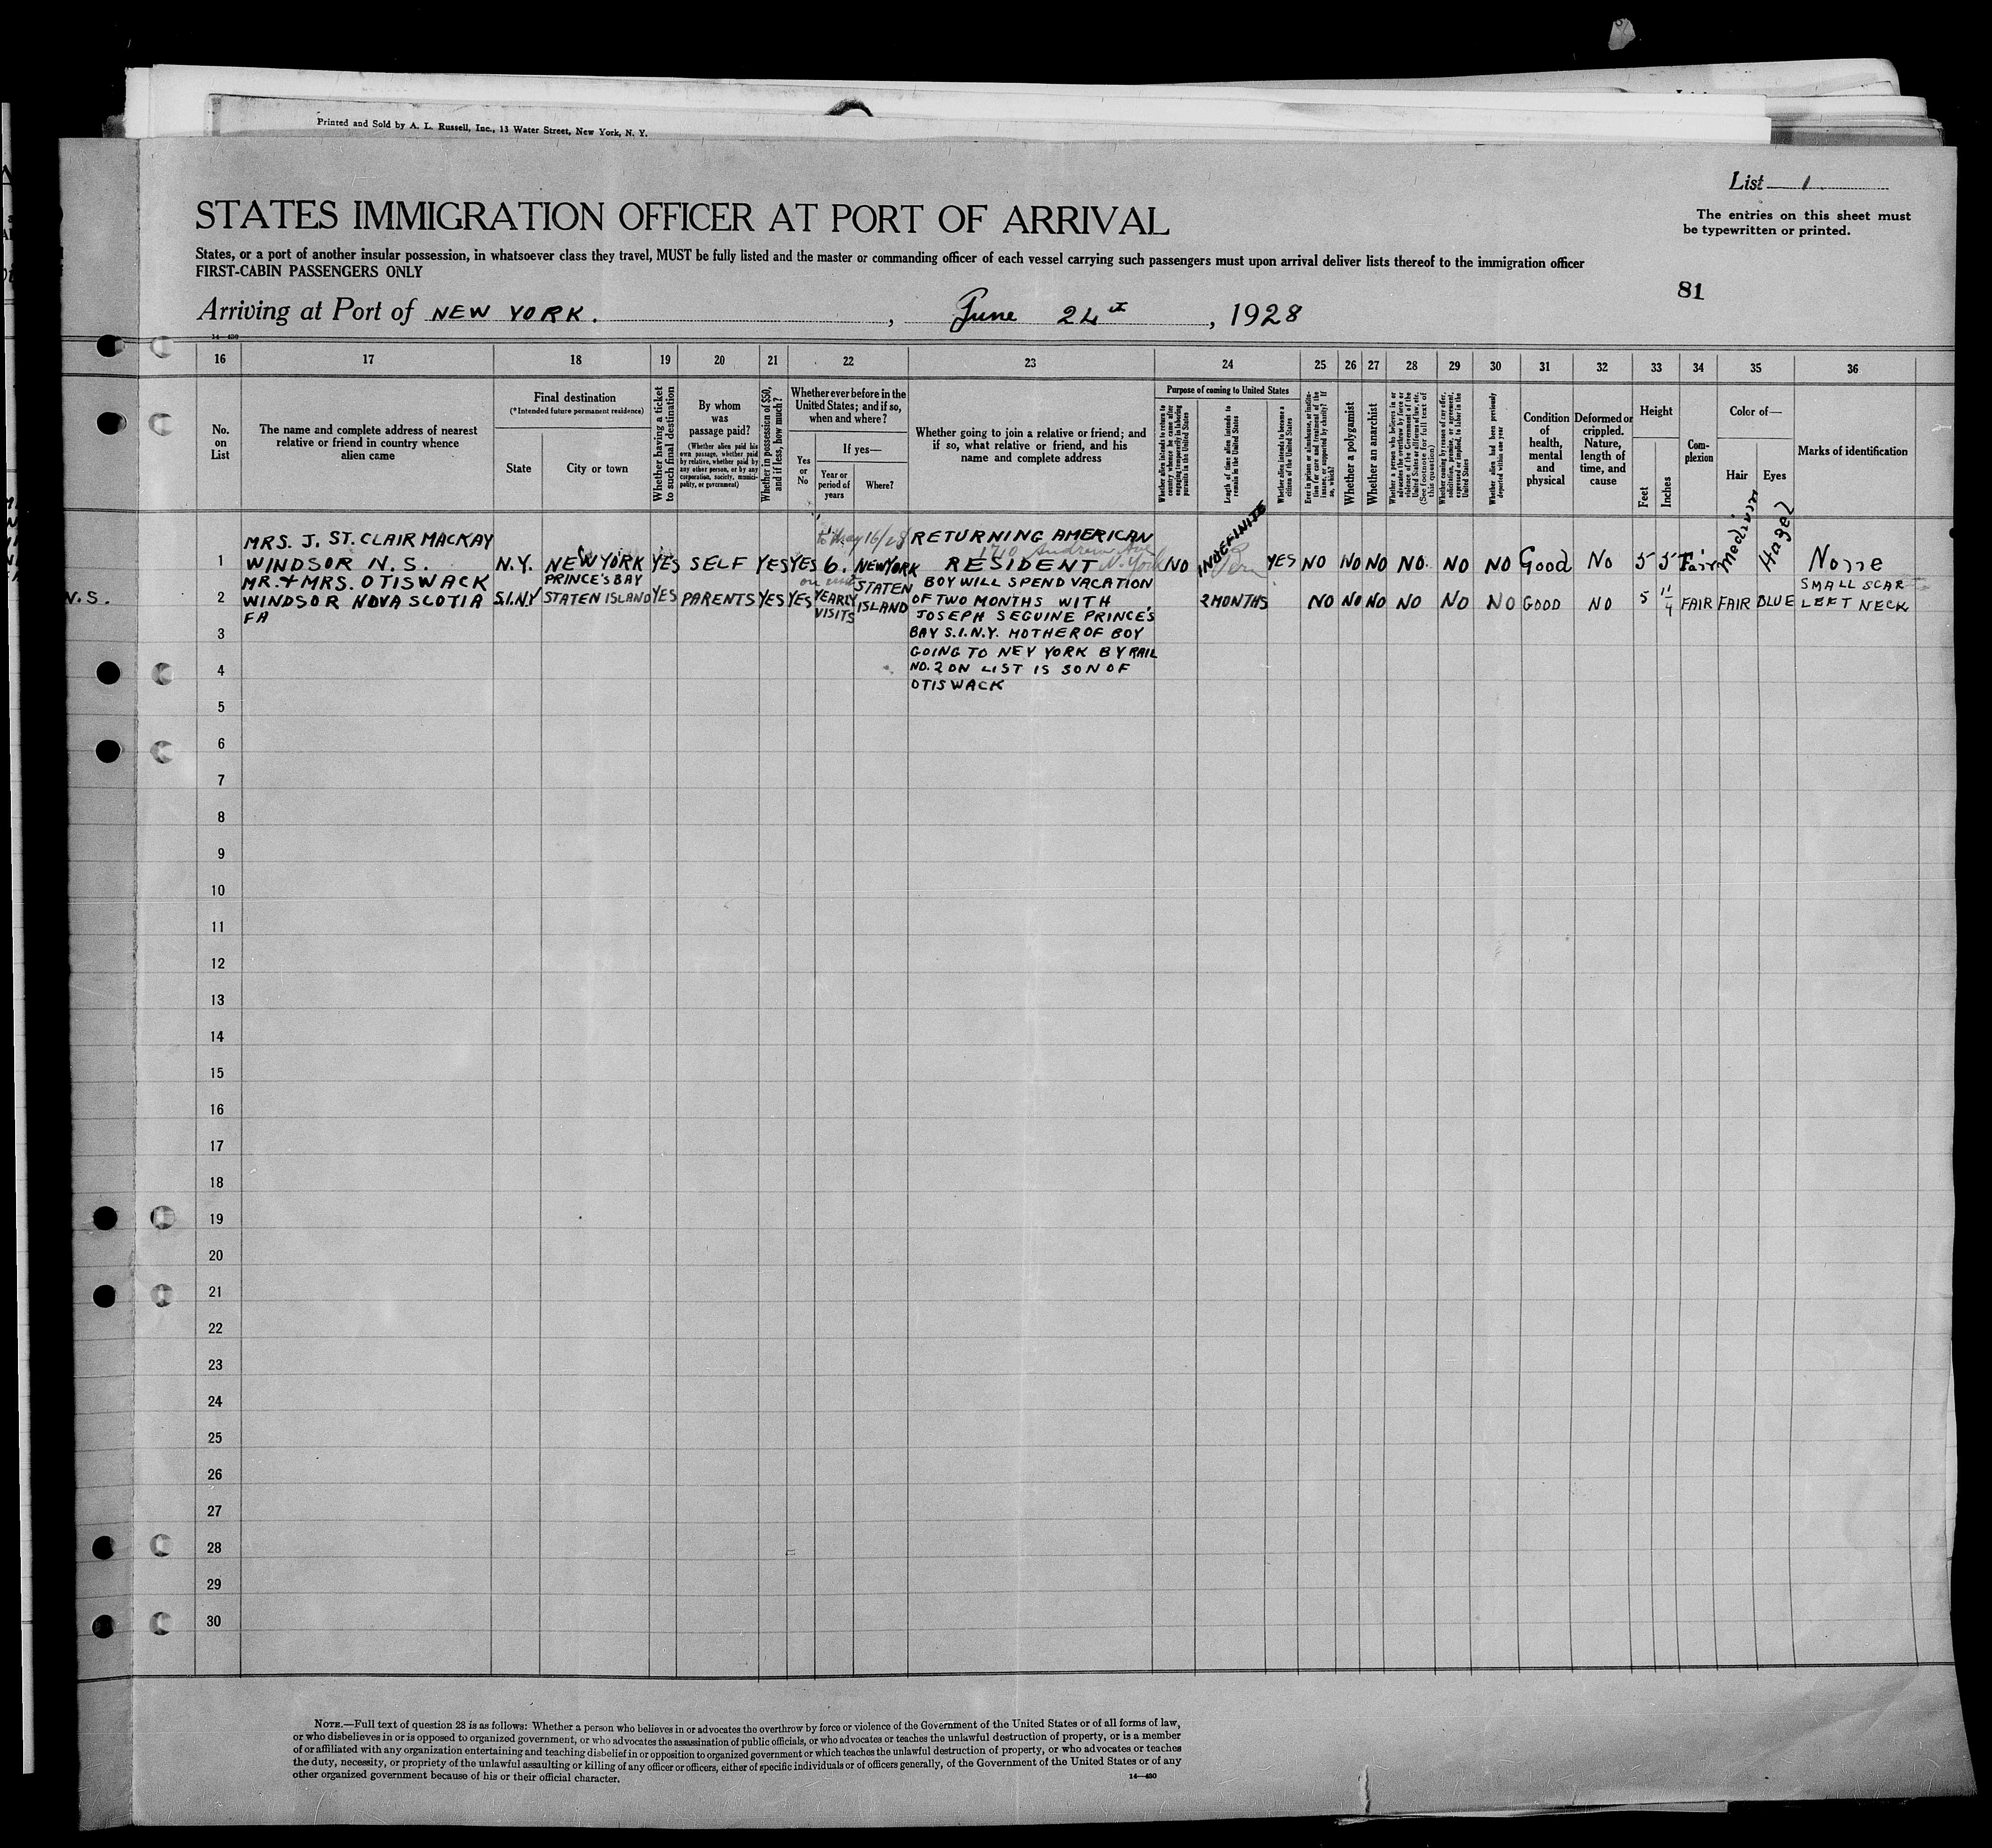 Printed and Sold by A. L. Russell, Inc., 13 Water Street, New York, N. Y.
List 1
STATES IMMIGRATION OFFICER AT PORT OF ARRIVAL
The entries on this sheet must
be typewritten or printed.
States, or a port of another insular possession, in whatsoever class they travel, MUST be fully listed and the master or commanding officer of each vessel carrying such passengers must upon arrival deliver lists thereof to the immigration officer
FIRST-CABIN PASSENGERS ONLY
81
Arriving at Port of NEW YORK. , June 24th , 1928
14—430
16 17 18 19 20 21 22 23 24 25 26 27 28 29 30 31 32 33 34 35 36
No.
on
List
The name and complete address of nearest
relative or friend in country whence
alien came
Final destination
(*Intended future permanent residence)
State
City or town
Whether having a ticket
to such final destination
By whom
was
passage paid?
(Whether alien paid his
own passage, whether paid
by relative, whether paid by
any other person, or by any
corporation, society, munici-
pality, or government)
Whether in possession of $50,
and if less, how much?
Whether ever before in the
United States; and if so,
when and where?
Yes
or
No
If yes—
Year or
period of
years
Where?
Whether going to join a relative or friend; and
if so, what relative or friend, and his
name and complete address
Purpose of coming to United States
Whether alien intends to return to
country whence he came after
engaging temporarily in laboring
pursuits in the United States
Length of time alien intends to
remain in the United States
Whether alien intends to become a
citizen of the United States
Ever in prison or almshouse, or institu-
tion for care and treatment of the
insane, or supported by charity? If
so, which?
Whether a polygamist
Whether an anarchist
Whether a person who believes in or
advocates the overthrow by force or
violence of the Government of the
United States or all forms of law, etc.
(See footnote for full text of
this question)
Whether coming by reason of any offer,
solicitation, promise, or agreement,
expressed or implied, to labor in the
United States
Whether alien had been previously
deported within one year
Condition
of
health,
mental
and
physical
Deformed or
crippled.
Nature,
length of
time, and
cause
Height
Feet
Inches
Com-
plexion
Color of—
Hair
Eyes
Marks of identification
MRS. J. ST. CLAIR MACKAY
1 WINDSOR N.S. N.Y. NEW YORK YES SELF YES YES 6. NEW YORK
to May 16/28
RETURNING AMERICAN
1710 Andrews Ave
RESIDENT N. York
NO INDEFINITE YES NO NO NO NO. NO NO Good No 5 5 Fair Medium Hazel None
MR. + MRS. OTIS WACK
N.S.
2 WINDSOR NOVA SCOTIA S.I.N.Y PRINCE'S BAY
STATEN ISLAND YES PARENTS YES YES YEARLY
VISITS
STATEN
ISLAND
FA
BOY WILL SPEND VACATION
OF TWO MONTHS WITH
JOSEPH SEGUINE PRINCE'S
BAY S.I.N.Y. MOTHER OF BOY
GOING TO NEY YORK BY RAIL
NO. 2 ON LIST IS SON OF
OTIS WACK
2 MONTHS NO NO NO NO NO NO GOOD NO 5 FAIR FAIR BLUE SMALL SCAR
LEFT NECK
3
4
5
6
7
8
9
10
11
12
13
14
15
16
17
18
19
20
21
22
23
24
25
26
27
28
29
30
NOTE.—Full text of question 28 is as follows: Whether a person who believes in or advocates the overthrow by force or violence of the Government of the United States or of all forms of law,
or who disbelieves in or is opposed to organized government, or who advocates the assassination of public officials, or who advocates or teaches the unlawful destruction of property, or is a member
of or affiliated with any organization entertaining and teaching disbelief in or opposition to organized government or which teaches the unlawful destruction of property, or who advocates or teaches
the duty, necessity, or propriety of the unlawful assaulting or killing of any officer or officers, either of specific individuals or of officers generally, of the Government of the United States or of any
other organized government because of his or their official character.
14—430